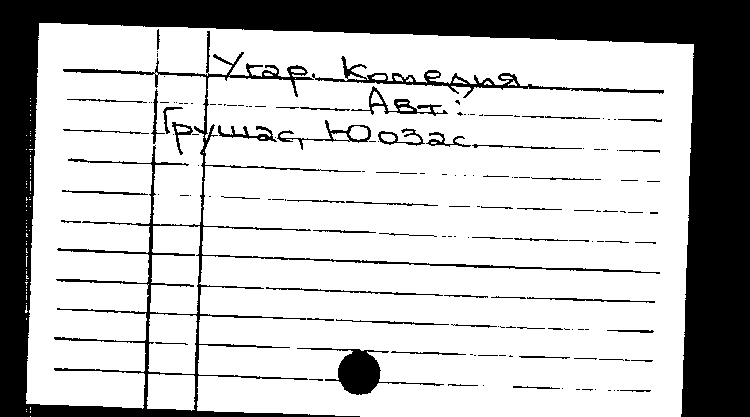 Угар. Комедия.
Авт.:
Грушас, Юозас.